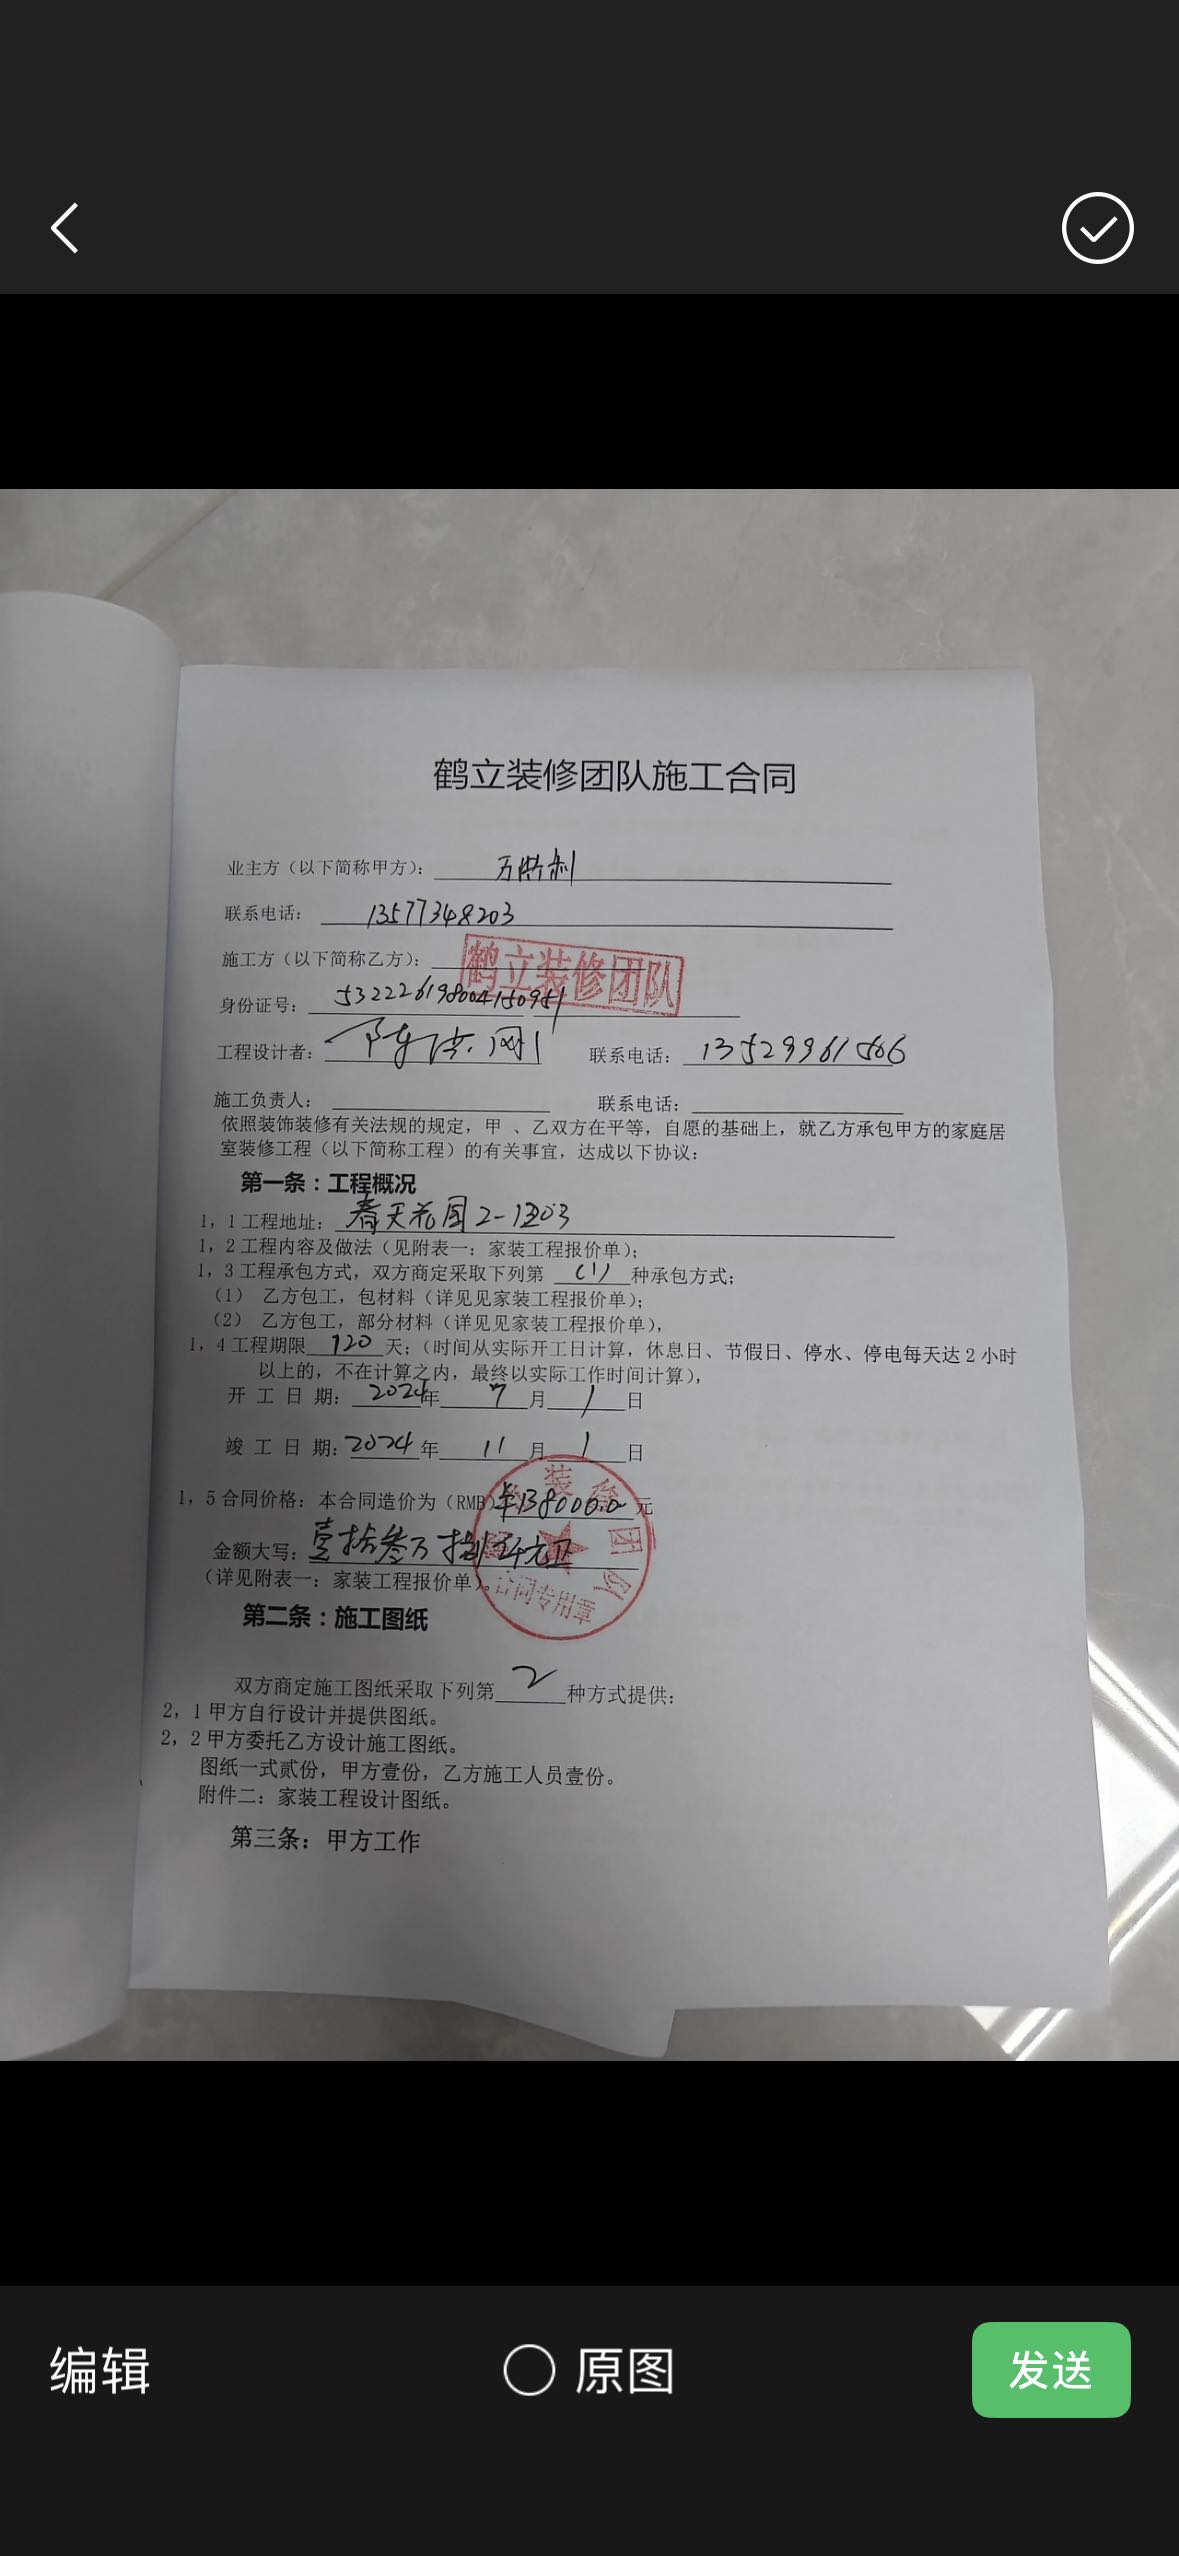 鹤立装修团队施工合同
业主方（以下简称甲方）：
联系电话： 13577348203
施工方（以下简称乙方）： 鹤立装修团队
身份证号： 532226198004150951
工程设计者： 联系电话： 13529961506
施工负责人： 联系电话：
依照装饰装修有关法规的规定，甲 、乙双方在平等，自愿的基础上，就乙方承包甲方的家庭居
室装修工程（以下简称工程）的有关事宜，达成以下协议：
第一条：工程概况
1，1工程地址： 春天花园2-1203
1，2工程内容及做法（见附表一：家装工程报价单）；
1，3工程承包方式，双方商定采取下列第 (1) 种承包方式；
（1） 乙方包工，包材料（详见见家装工程报价单）；
（2） 乙方包工，部分材料（详见见家装工程报价单），
1，4工程期限 120 天；（时间从实际开工日计算，休息日、节假日、停水、停电每天达2小时
以上的，不在计算之内，最终以实际工作时间计算），
开 工 日 期： 2024年 7 月 1 日
竣 工 日 期：2024 年 11 月 1 日
1，5合同价格：本合同造价为（RMB）¥138000.0 元
金额大写：壹拾叁万捌仟元正
（详见附表一：家装工程报价单）。
装修团队
合同专用章
第二条：施工图纸
双方商定施工图纸采取下列第 2 种方式提供：
2，1甲方自行设计并提供图纸。
2，2甲方委托乙方设计施工图纸。
图纸一式贰份，甲方壹份，乙方施工人员壹份。
附件二：家装工程设计图纸。
第三条：甲方工作
编辑 原图 发送